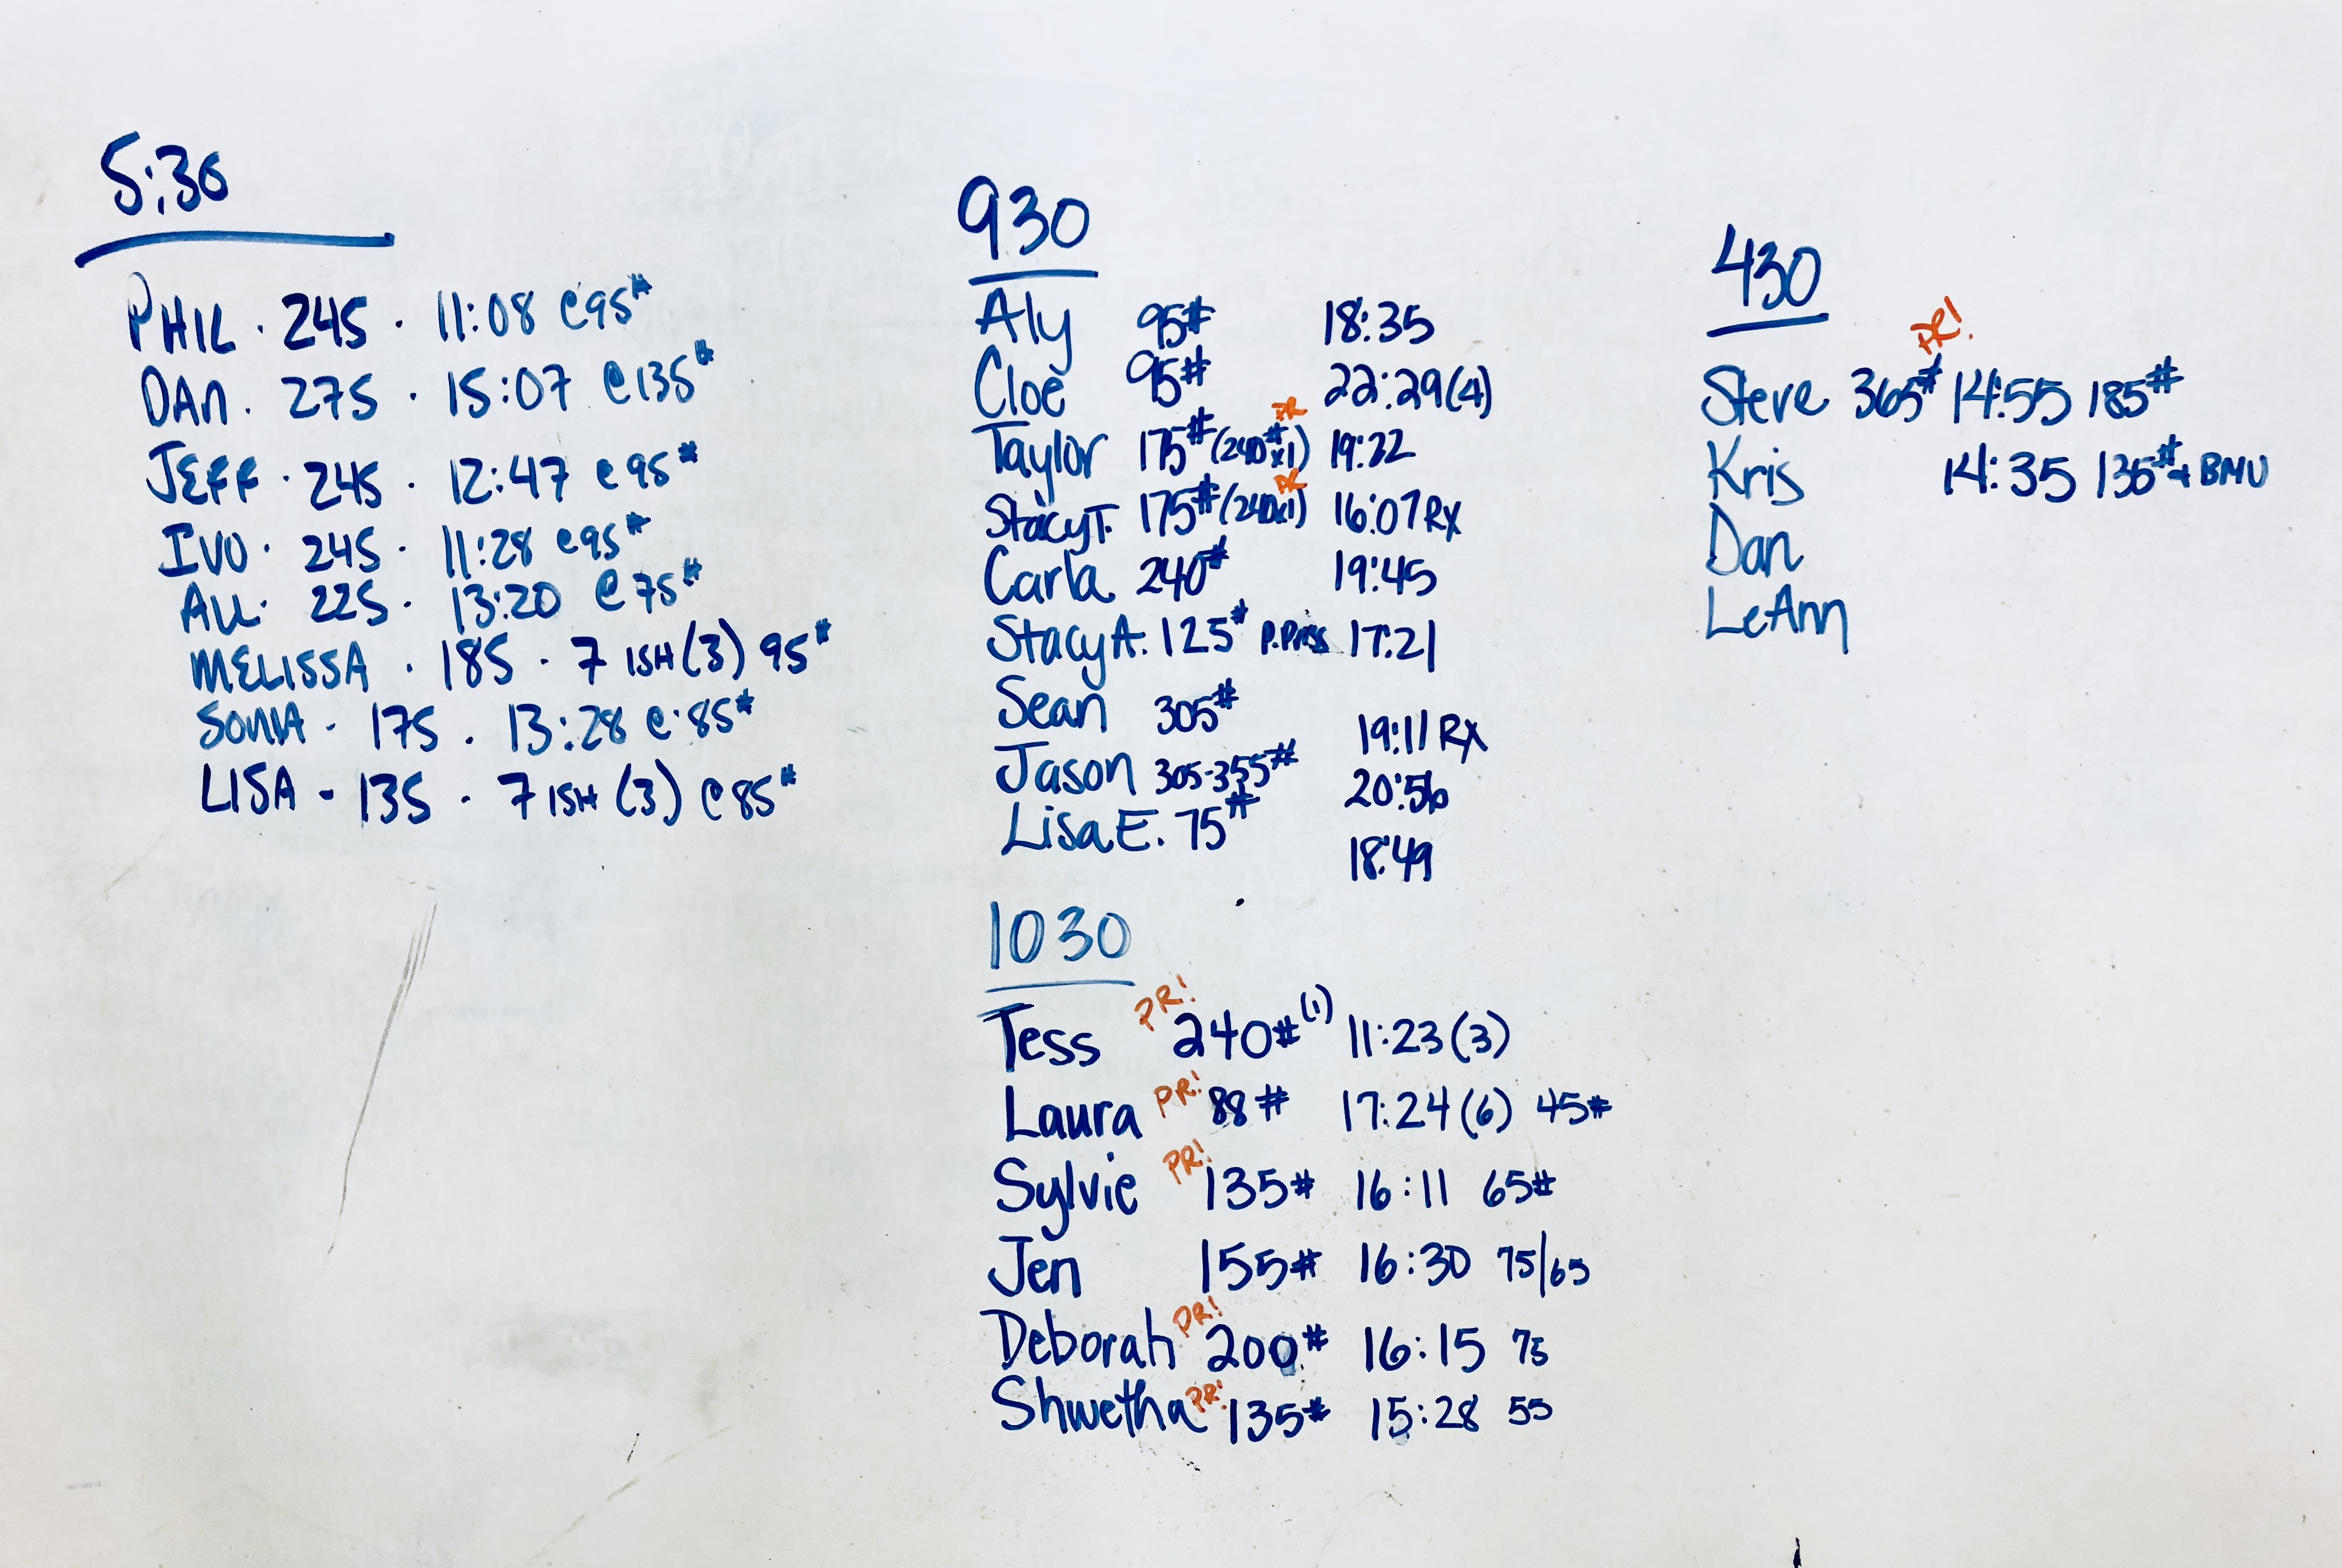 5:30
PHIL · 245 · 11:08 @95#
DAN. 275 · 15:07 @135#
JEFF · 245 · 12:47 @95#
IVO · 245 · 11:28 @95#
ALI · 225 · 13:20 @75#
MELISSA · 185 · 7 ISH (3) 95#
SONIA · 175 · 13:28 @ 85#
LISA - 135 · 7 ISH (3) @85#
930
Aly 95# 18:35
Cloe 95# 22:29(4)
Taylor 175# (240#x1) PR 19:22
Stacy T. 175# (240x1) PR 16:07 RX
Carla 240# 19:45
Stacy A. 125# P.Press 17:21
Sean 305# 19:11 RX
Jason 305-355# 20:56
Lisa E. 75# 18:49
1030
Tess PR! 240# (1) 11:23 (3)
Laura PR! 88# 17:24 (6) 45#
Sylvie PR! 135# 16:11 65#
Jen 155# 16:30 75/65
Deborah PR! 200# 16:15 75
Shwetha PR! 135# 15:28 55
430
PR!
Steve 365# 14:55 185#
Kris 14:35 135# + BMU
Dan
LeAnn